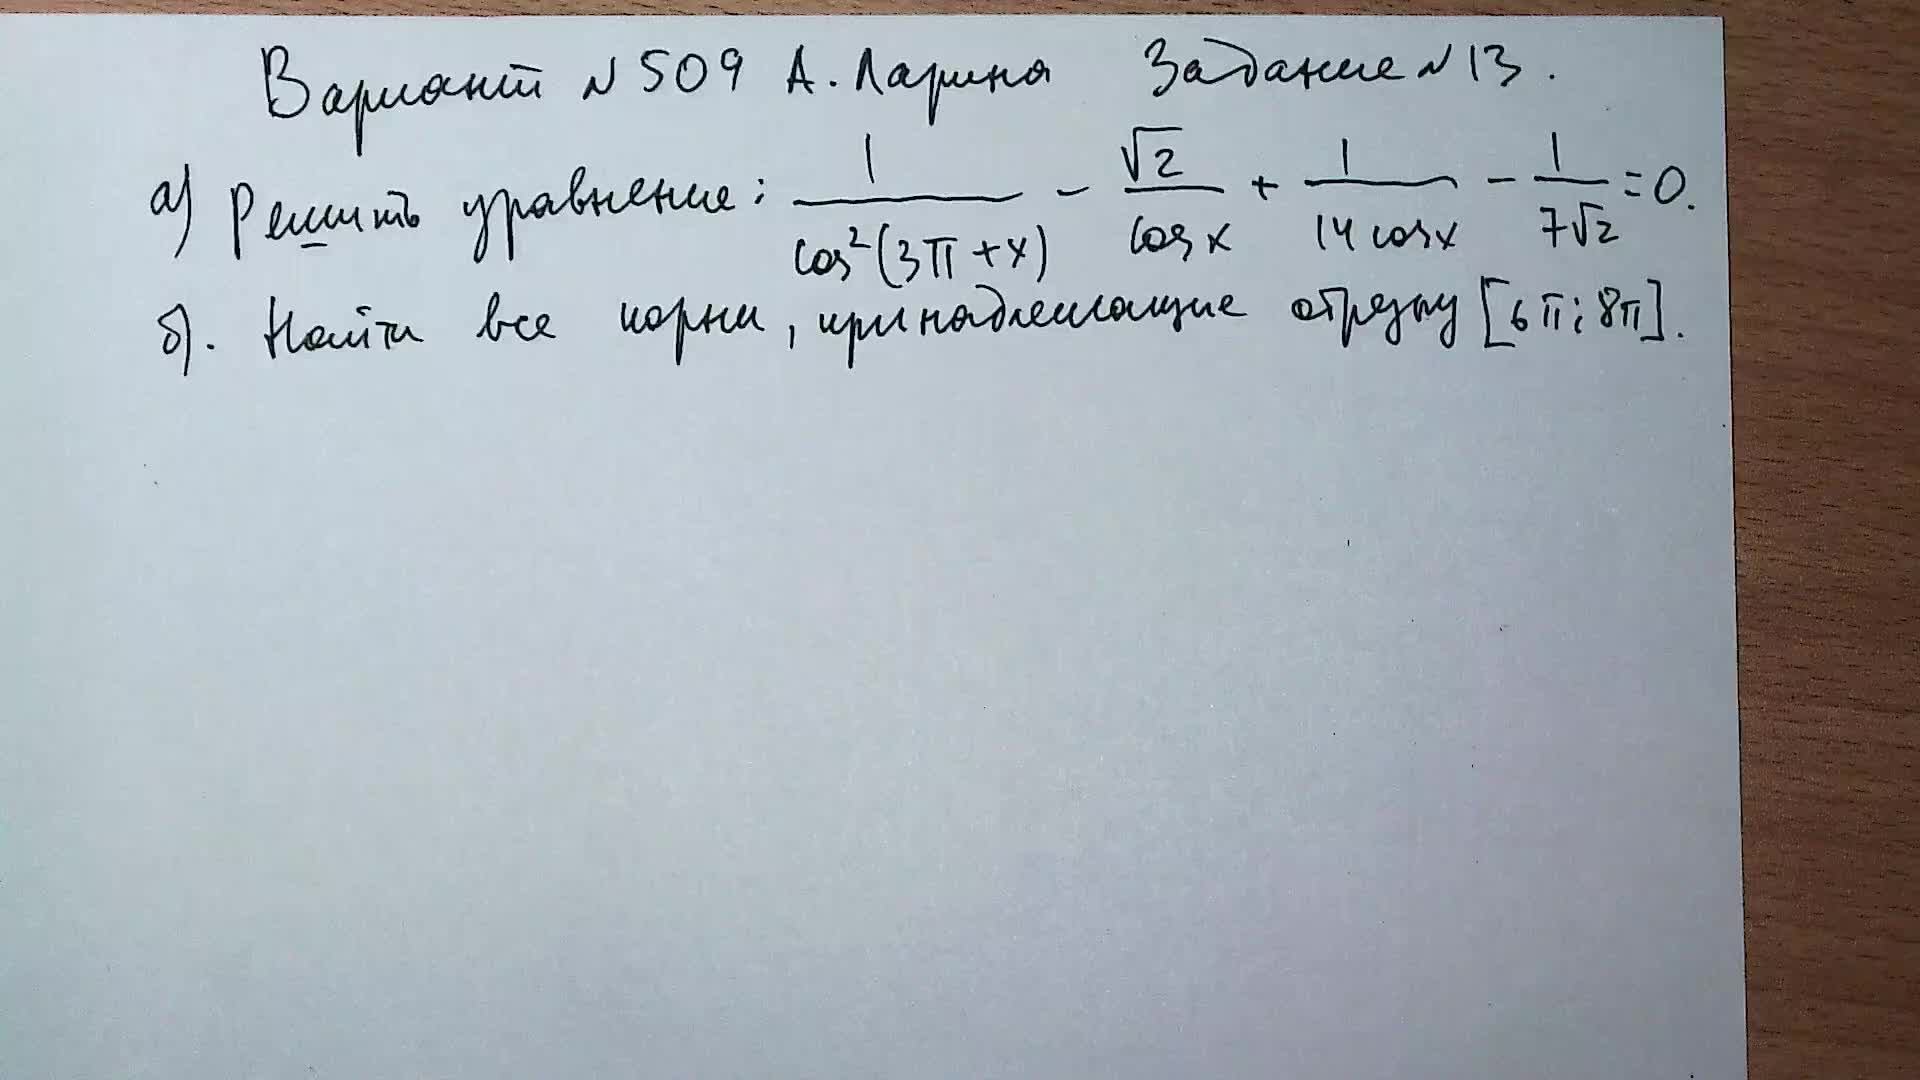 Вариант №509 А. Ларина Задание №13.
а) Решить уравнение: 1/cos²(3π+x) - √2/cos x + 1/14cosx - 1/7√2 = 0.
б). Найти все корни, принадлежащие отрезку [6π; 8π].